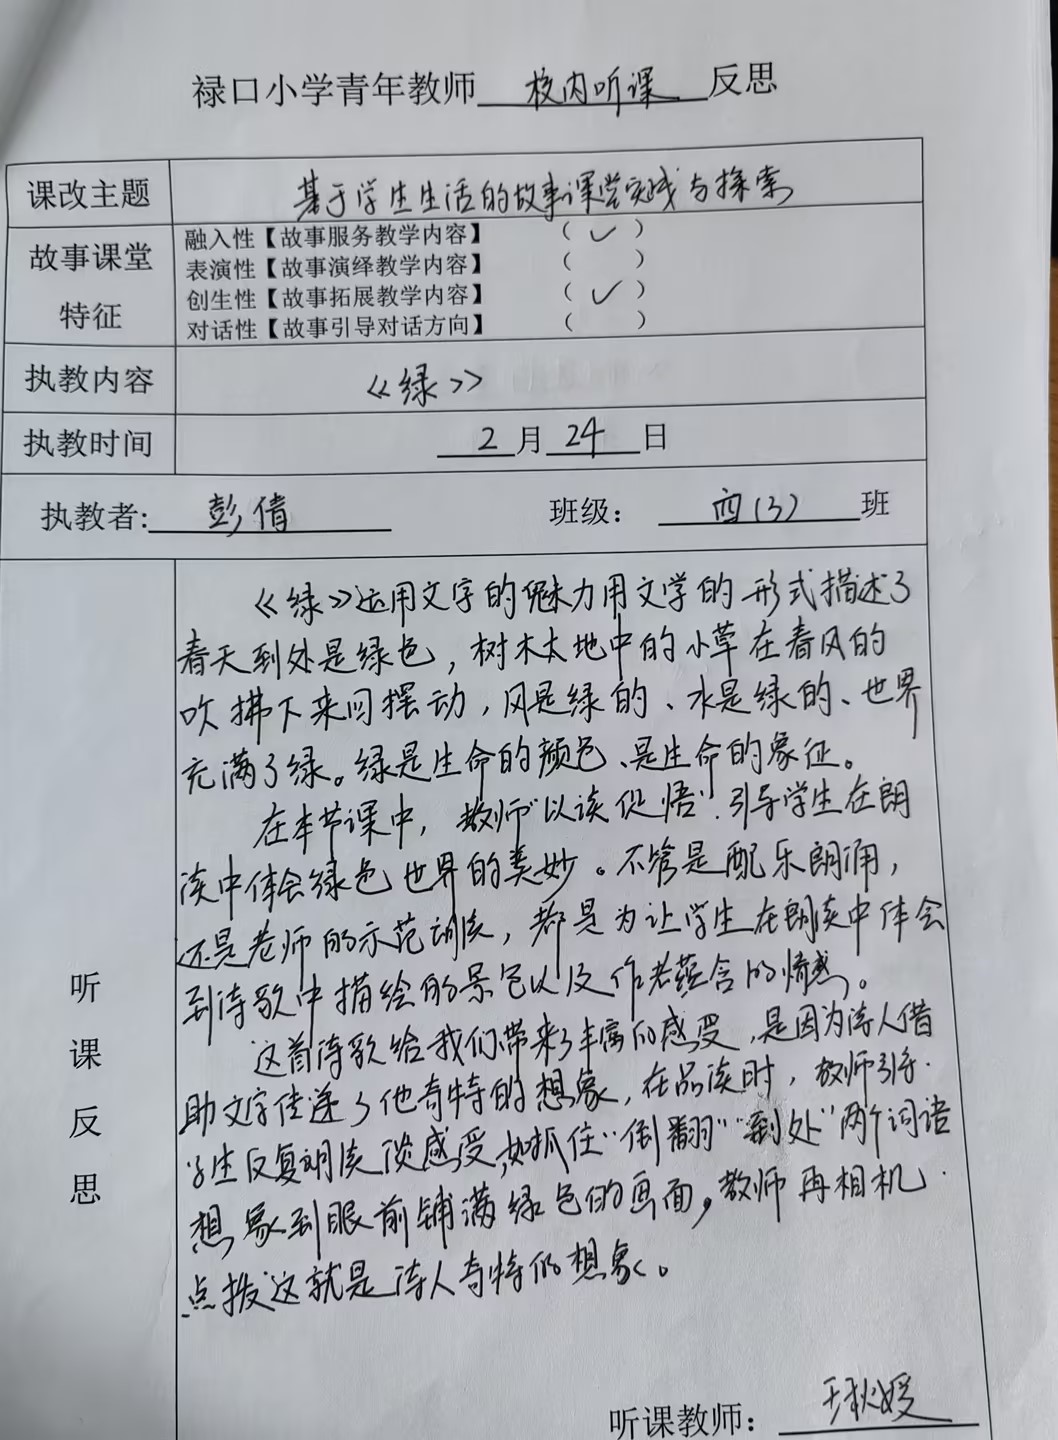 禄口小学青年教师 校内听课 反思
课改主题 基于学生生活的故事课堂实践与探索
故事课堂特征
融入性【故事服务教学内容】 ( ✓ )
表演性【故事演绎教学内容】 ( )
创生性【故事拓展教学内容】 ( ✓ )
对话性【故事引导对话方向】 ( )
执教内容 《绿》
执教时间 2月24日
执教者: 彭倩 班级: 四(3)班
听课反思
《绿》运用文字的魅力用文学的形式描述了
春天到处是绿色，树木大地中的小草在春风的
吹拂下来回摆动，风是绿的、水是绿的、世界
充满了绿。绿是生命的颜色、是生命的象征。
在本节课中，教师“以读促悟”.引导学生在朗
读中体会绿色世界的美妙。不管是配乐朗诵，
还是老师的示范朗读，都是为让学生在朗读中体会
到诗歌中描绘的景色以及作者蕴含的情感。
这首诗歌给我们带来了丰富的感受，是因为诗人借
助文字传递了他奇特的想象，在品读时，教师引导
学生反复朗读谈感受，如抓住“倒翻”“到处”两个词语
想象到眼前铺满绿色的画面，教师再相机
点拨这就是诗人奇特的想象。
听课教师: 王秋媛